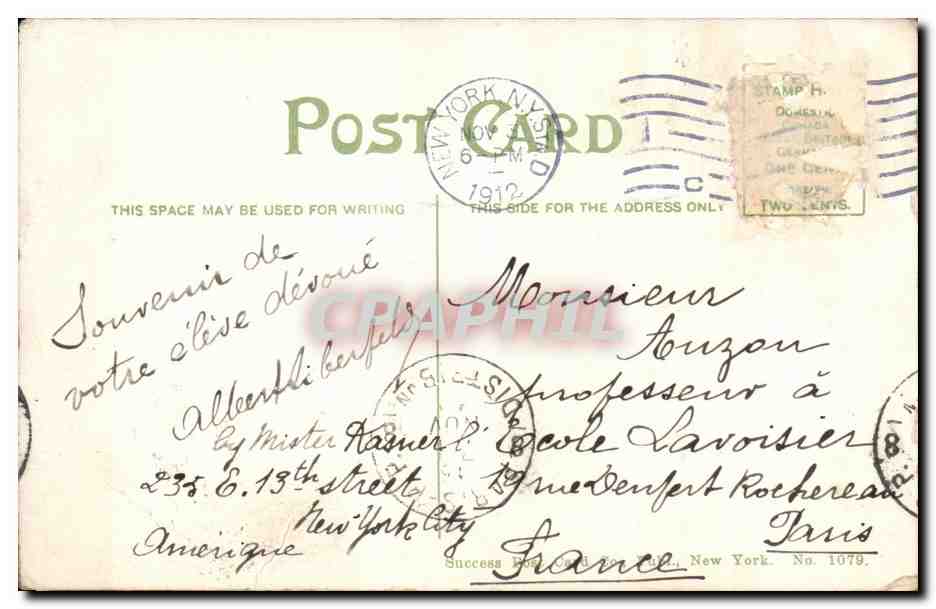 POST CARD
NEW YORK, N.Y. STA. D
NOV 3
6-PM
1912
C
STAMP H
DOMESTIC
ONE CEN
TWO CENTS.
THIS SPACE MAY BE USED FOR WRITING
THIS SIDE FOR THE ADDRESS ONLY
Souvenir de
votre élève dévoué
Albert Liberfeld
by Mister Rasner
235 E. 13th street
New York City
Amérique
Monsieur
Auzon
professeur à
l'Ecole Lavoisier
19 rue Denfert Rochereau
Paris
France
CRAPHIL
PARIS
8
Success Post Card Co., Publ., New York. No. 1079.